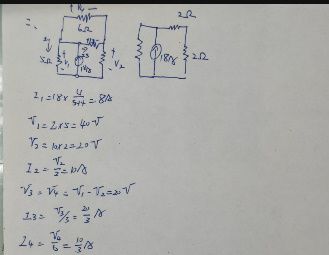 ∴
+ V₃ −
6Ω
2Ω
I₁
5Ω
V₁
18A
V₂
18A
2Ω
I₁ = 18 × 4/(5+4) = 8A
V₁ = 2×5 = 40V
V₂ = 10×2 = 20V
I₂ = V₂/2 = 10A
V₃ = V₄ = V₁ − V₂ = 20V
I₃ = V₃/3 = 20/3 A
I₄ = V₄/6 = 10/3 A